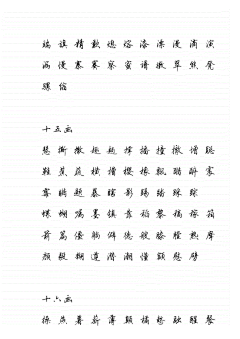 端 旗 精 歉 熄 熔 漆 漂 漫 滴 演
漏 慢 寨 赛 察 蜜 谱 嫩 翠 熊 凳
骡 缩
十五画
慧 撕 撒 趣 趟 撑 播 撞 撤 增 聪
鞋 蕉 蔬 横 槽 樱 橡 飘 醋 醉 震
霉 瞒 题 暴 瞎 影 踢 踏 踩 踪
蝶 蝴 嘱 墨 镇 靠 稻 黎 稿 稼 箱
箭 篇 僵 躺 僻 德 艘 膝 膛 熟 摩
颜 毅 糊 遵 潜 潮 懂 额 慰 劈
十六画
操 燕 薯 薪 薄 颠 橘 整 融 醒 餐